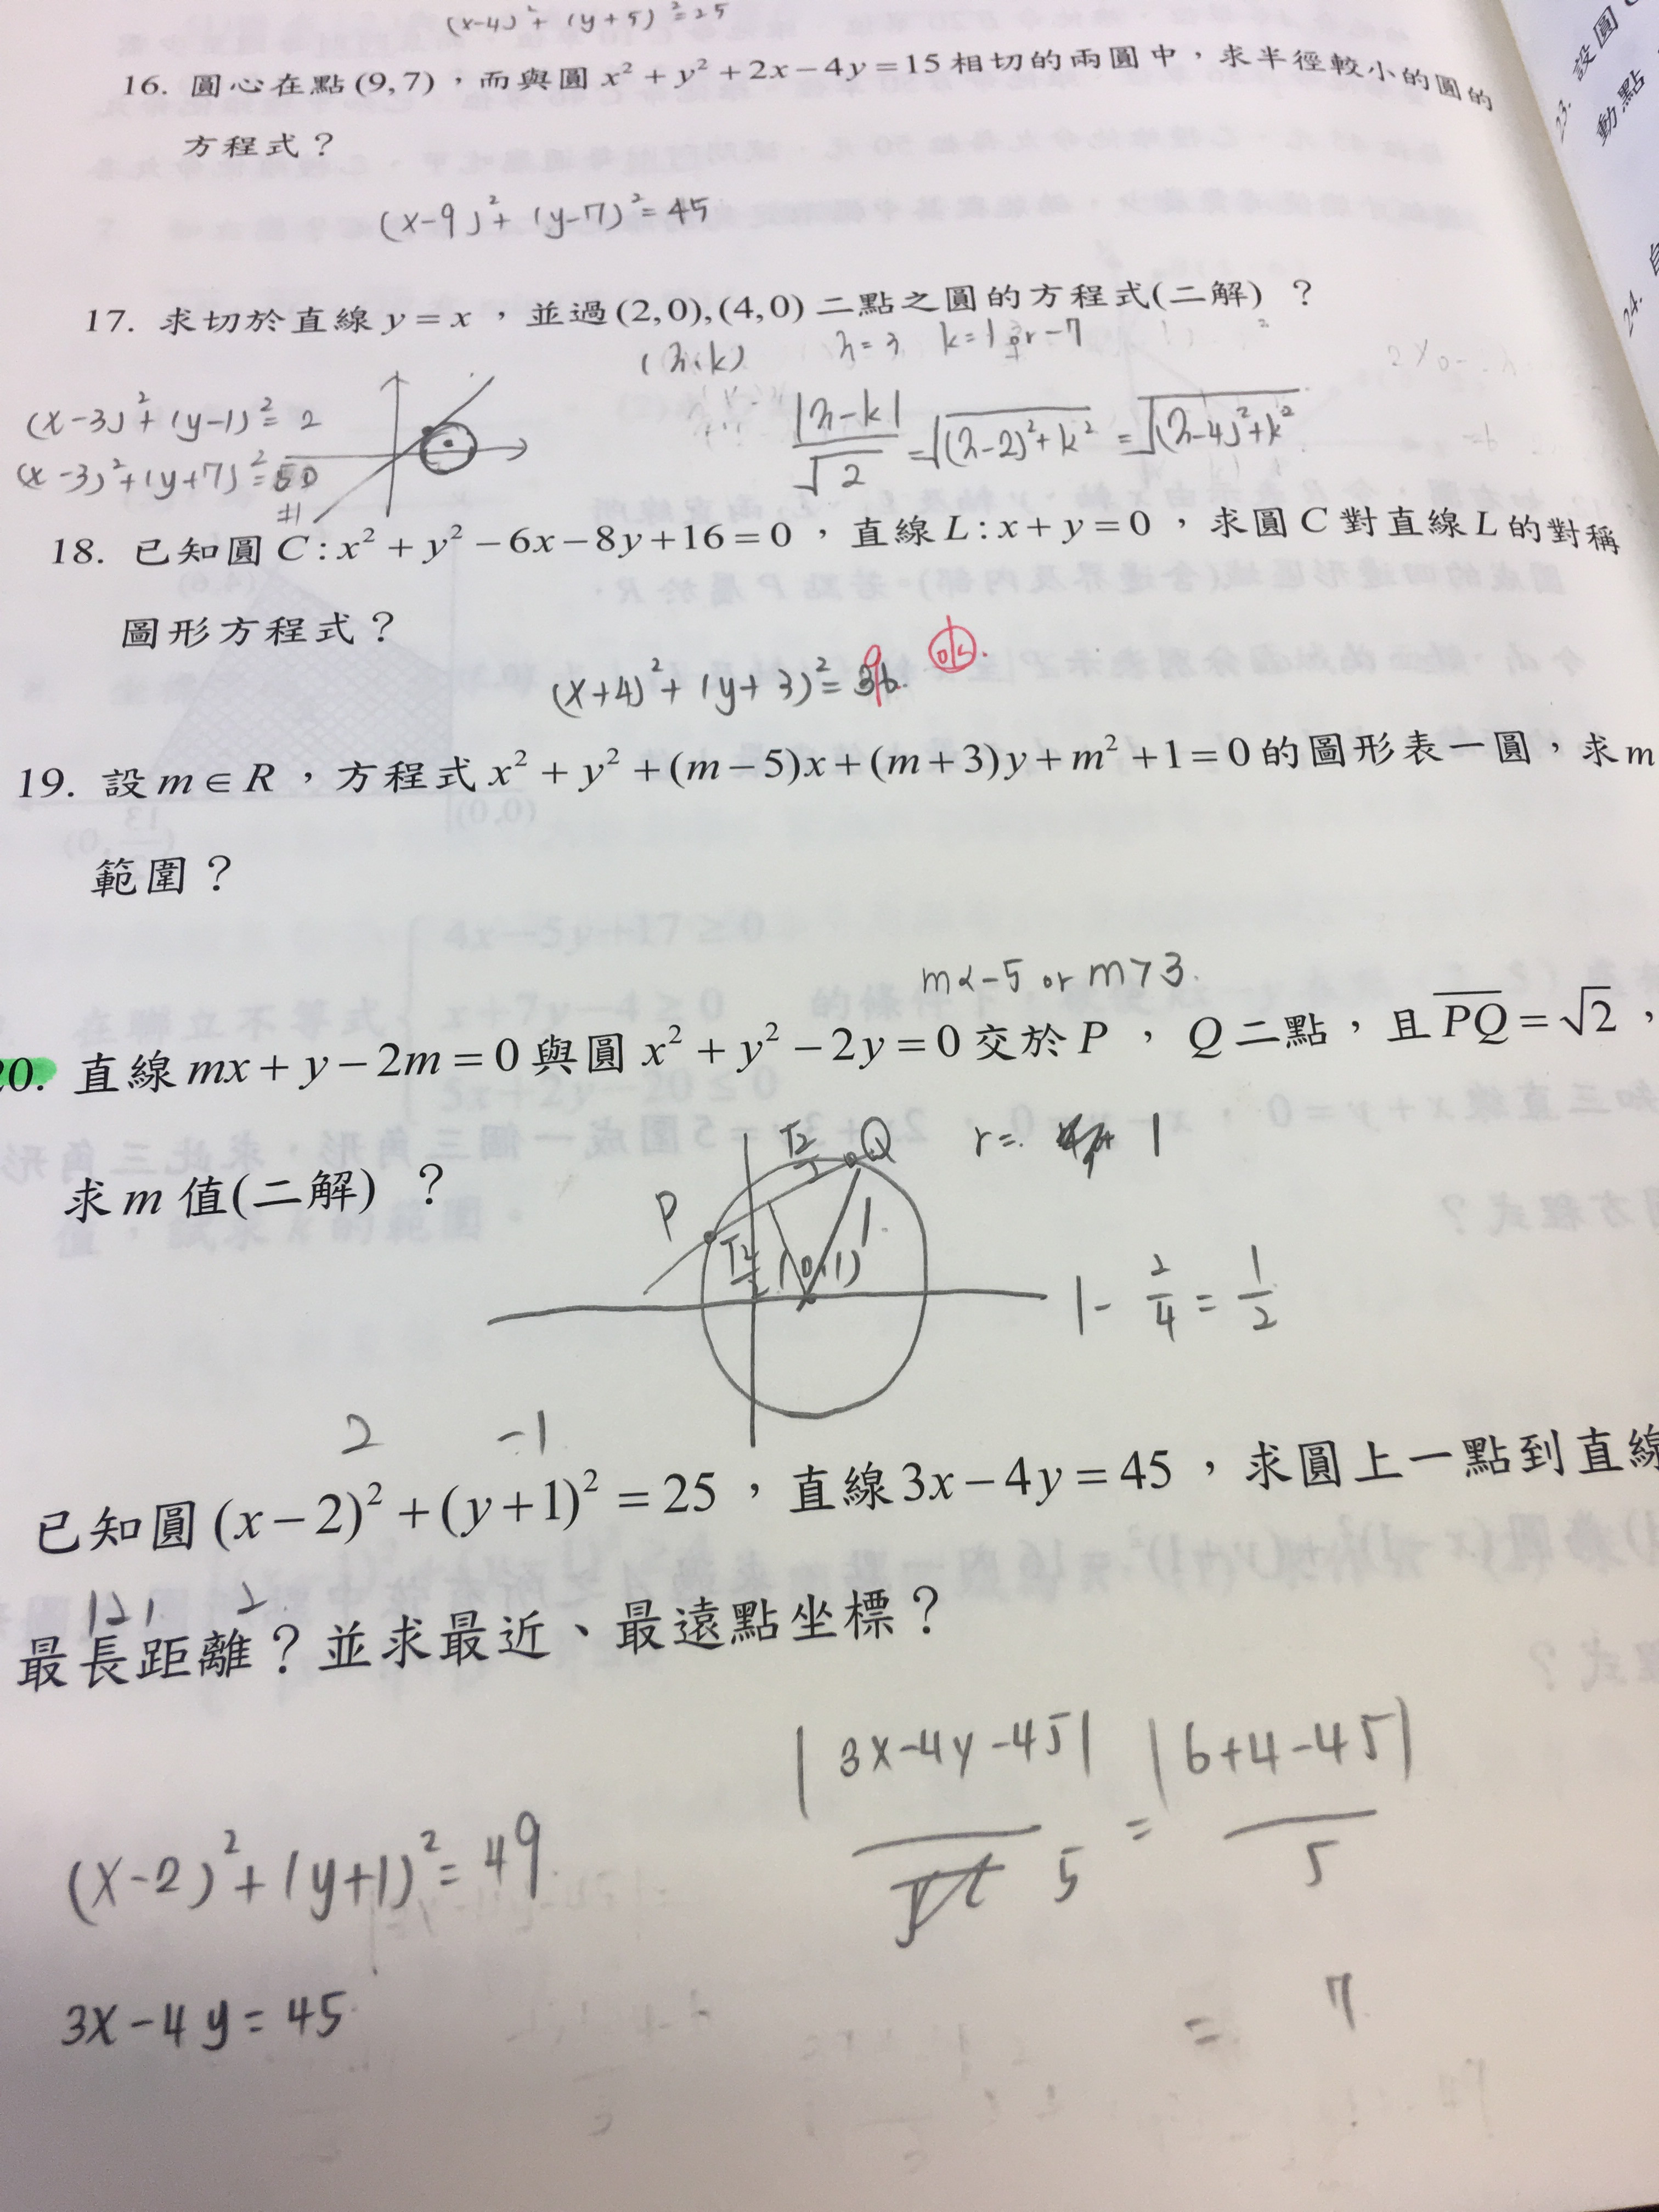 (x-4)²+(y+5)²=25
16. 圓心在點(9,7),而與圓 x²+y²+2x-4y=15相切的兩圓中,求半徑較小的圓的
方程式?
(x-9)²+(y-7)²=45
17. 求切於直線 y=x,並過(2,0),(4,0)二點之圓的方程式(二解)?
(h,k) h=3 k=1 or -7
(x-3)²+(y-1)²=2
(x-3)²+(y+7)²=50
|h-k|/√2=√((h-2)²+k²)=√((h-4)²+k²)
18. 已知圓 C:x²+y²-6x-8y+16=0,直線 L:x+y=0,求圓 C 對直線 L 的對稱
圖形方程式?
(x+4)²+(y+3)²=
9
19. 設 m∈R,方程式 x²+y²+(m-5)x+(m+3)y+m²+1=0的圖形表一圓,求 m
範圍?
m<-5 or m>3.
20. 直線 mx+y-2m=0與圓 x²+y²-2y=0交於 P, Q 二點,且 PQ=√2,
求 m 值(二解)?
P
Q
√2/2
√2/2
1
(0,1)
r= 1
1-2/4=1/2
2 -1
已知圓 (x-2)²+(y+1)²=25,直線3x-4y=45,求圓上一點到直線
12, 2
最長距離?並求最近、最遠點坐標?
|3x-4y-45|/5=|6+4-45|/5
=7
(x-2)²+(y+1)²=49
3x-4y=45
23. 設圓
動點
24.